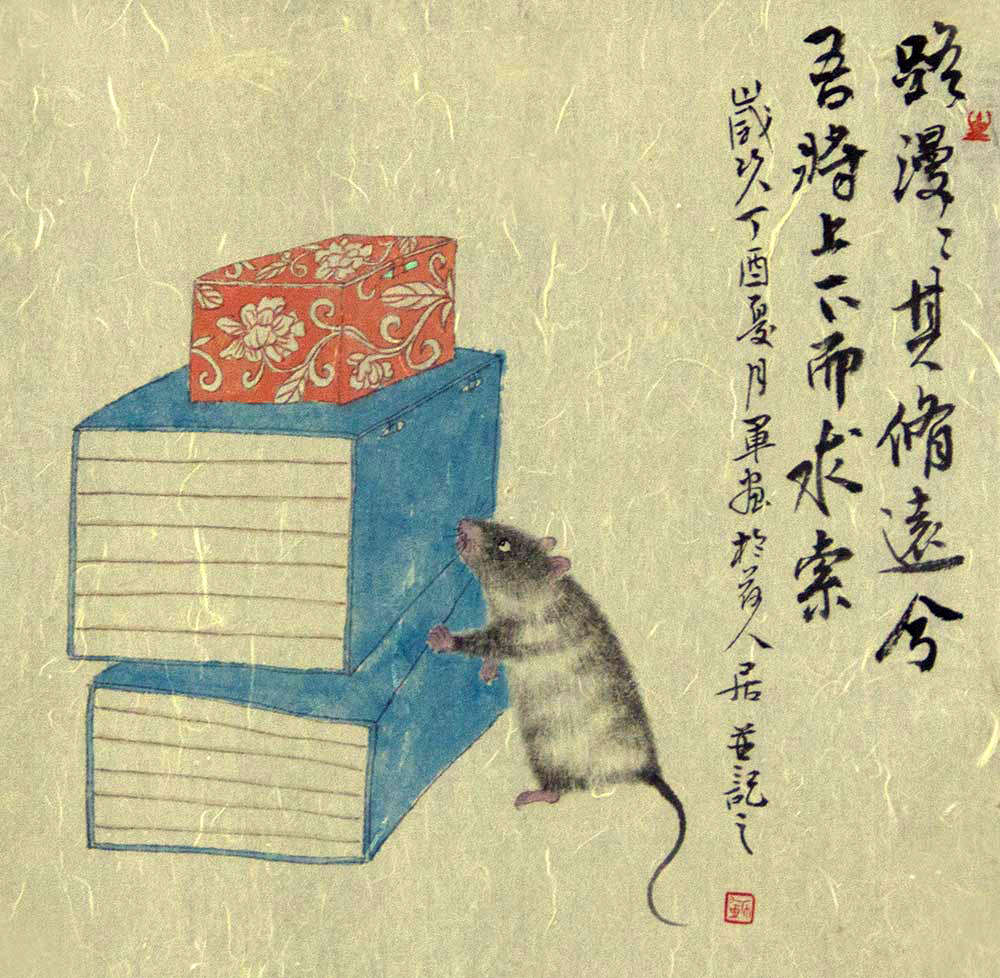 路漫〻其脩遠兮
吾將上下而求索
歲次丁酉夏月軍畫於茗人居並記之